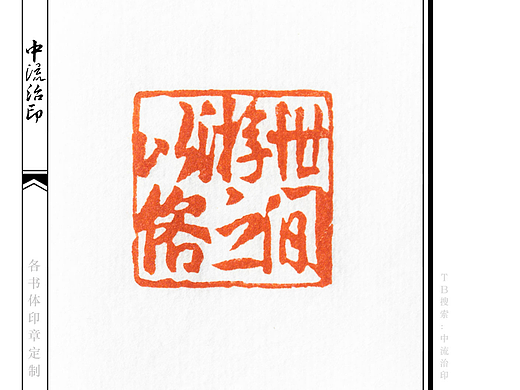 中流治印
世间
游之
以俗
各书体印章定制
TB搜索：中流治印